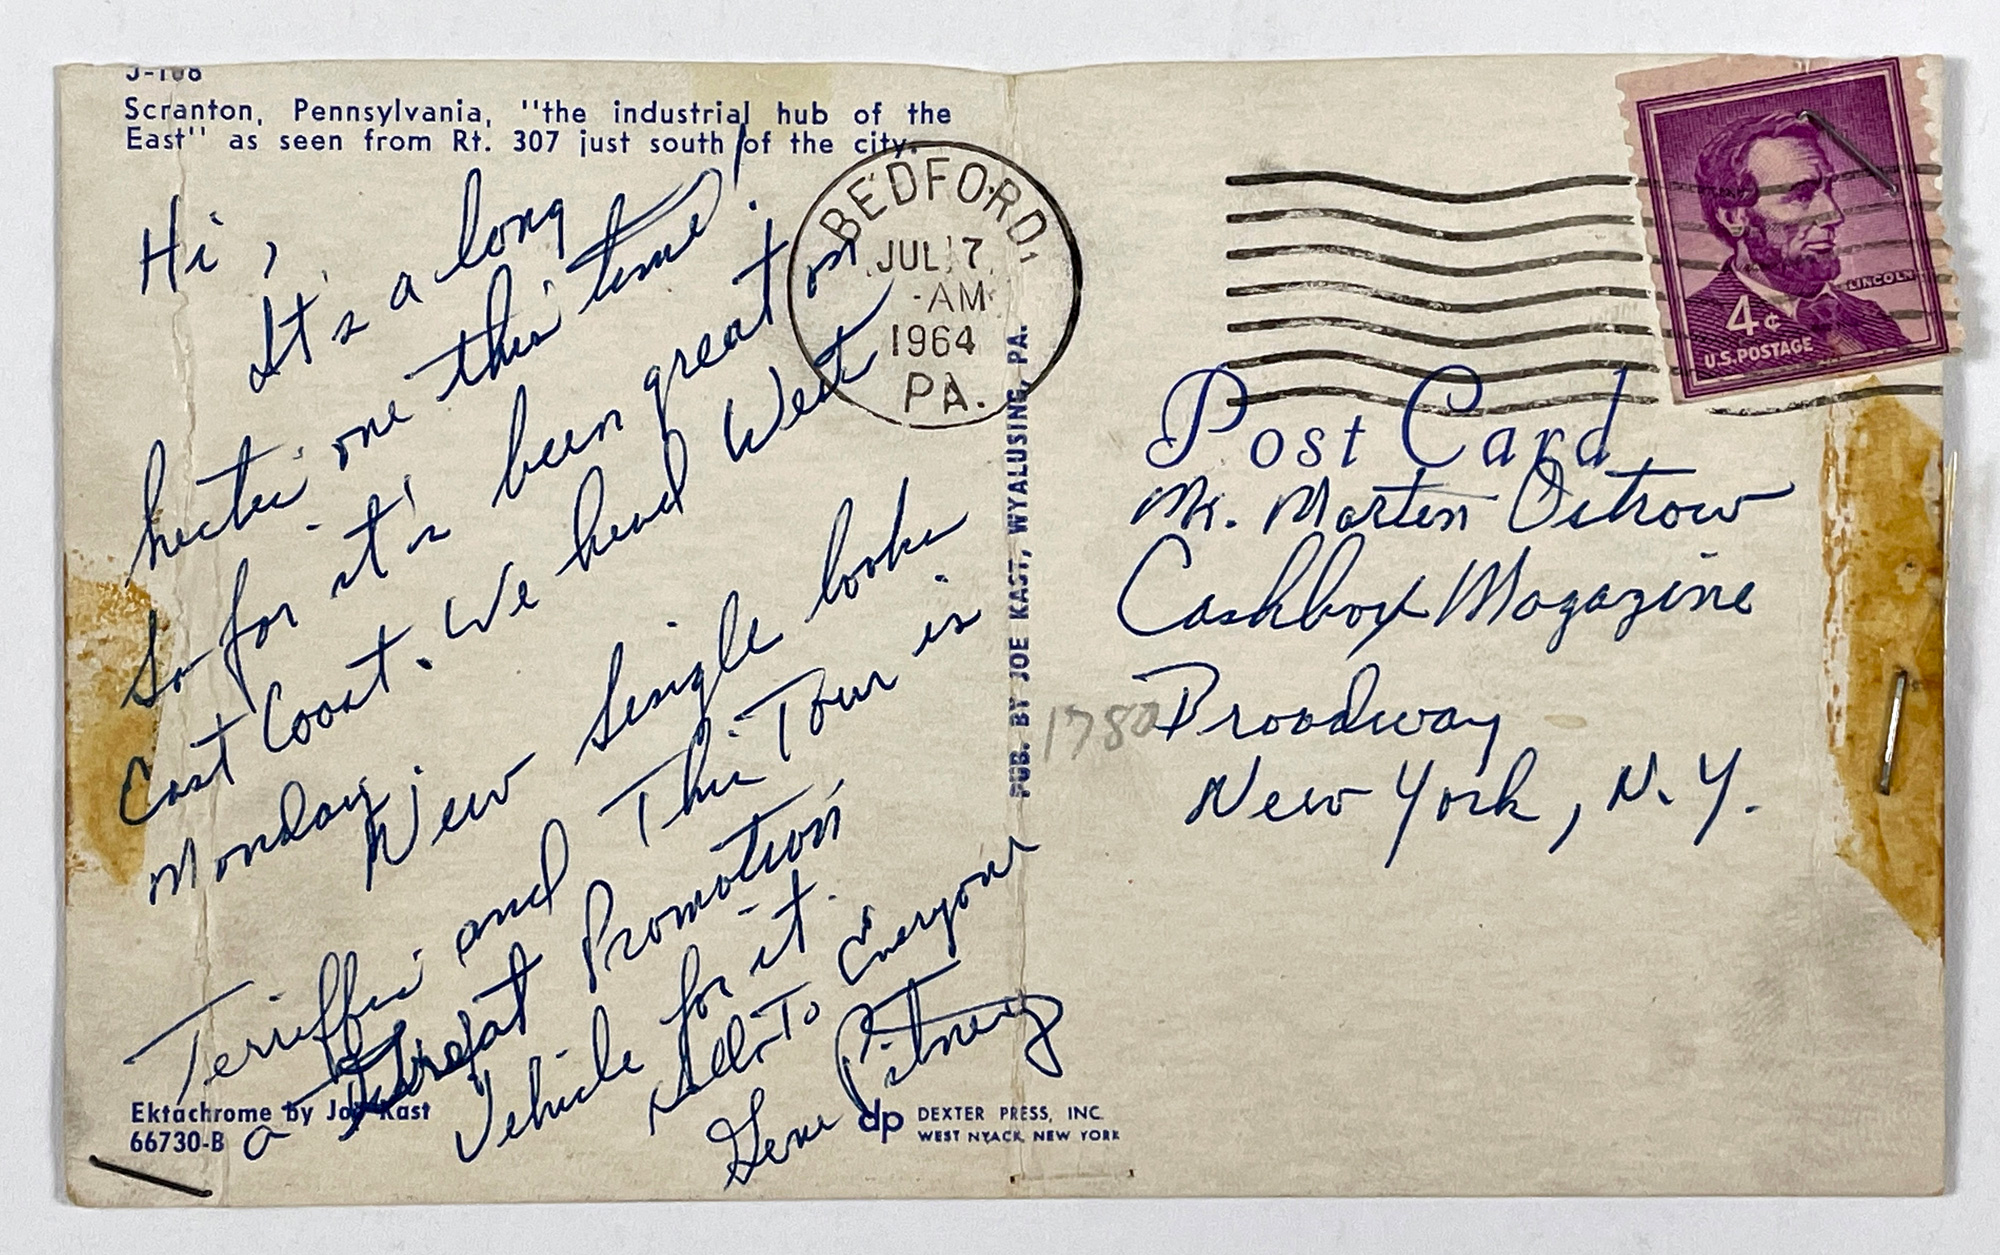 J-108
Scranton, Pennsylvania, "the industrial hub of the
East" as seen from Rt. 307 just south of the city.
Hi,
It's a long
hectic one this time!
So far it's been great on
East Coast. We head West
Monday.
New Single looks
Teriffic and This Tour is
a Great Promotion
Vehicle for it.
Hello To Everyone
Gene Pitney
Ektachrome by Joe Kast
66730-B
dp DEXTER PRESS, INC.
WEST NYACK, NEW YORK
PUB. BY JOE KAST, WYALUSING, PA.
BEDFORD,
JUL 7
AM
1964
PA.
LINCOLN
4¢
U.S. POSTAGE
Post Card
Mr. Marten Ostrow
Cashbox Magazine
1780 Broadway
New York, N.Y.